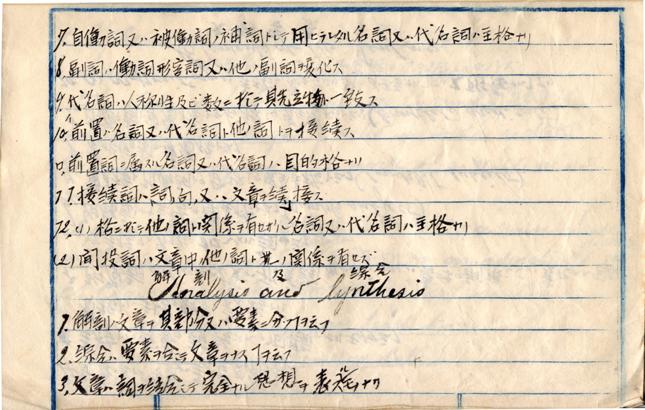 7. 自働詞又ハ被働詞ノ補詞トシテ用ヒラレタル名詞又ハ代名詞ハ主格ナリ
8. 副詞ハ働詞形容詞又ハ他ノ副詞ヲ変化ス
9. 代名詞ハ人称別性及ビ数ニ於テ其先立詞ト一致ス
10. 前置ハ名詞又ハ代名詞ト他ノ詞トヲ接続ス
前置詞ニ属スル名詞又ハ代名詞ハ目的格ナリ
11. 接続詞ハ詞,句,又ハ文章ヲ接ス
12. (1) 格ニ於テ他ノ詞ト関係ヲ有セザル名詞又ハ代名詞ハ主格ナリ
(2) 間投詞ハ文章中ノ他ノ詞ト関係ヲ有セズ
解剖 及 綜合
Analysis and Synthesis
1. 解剖ハ文章ヲ其部分又ハ要素ニ分ツヲ云フ
2. 綜合ハ要素ヲ合シテ文章ヲナスヲ云フ
3. 文章ハ詞ヲ綜合シテ完全ナル思想ヲ表